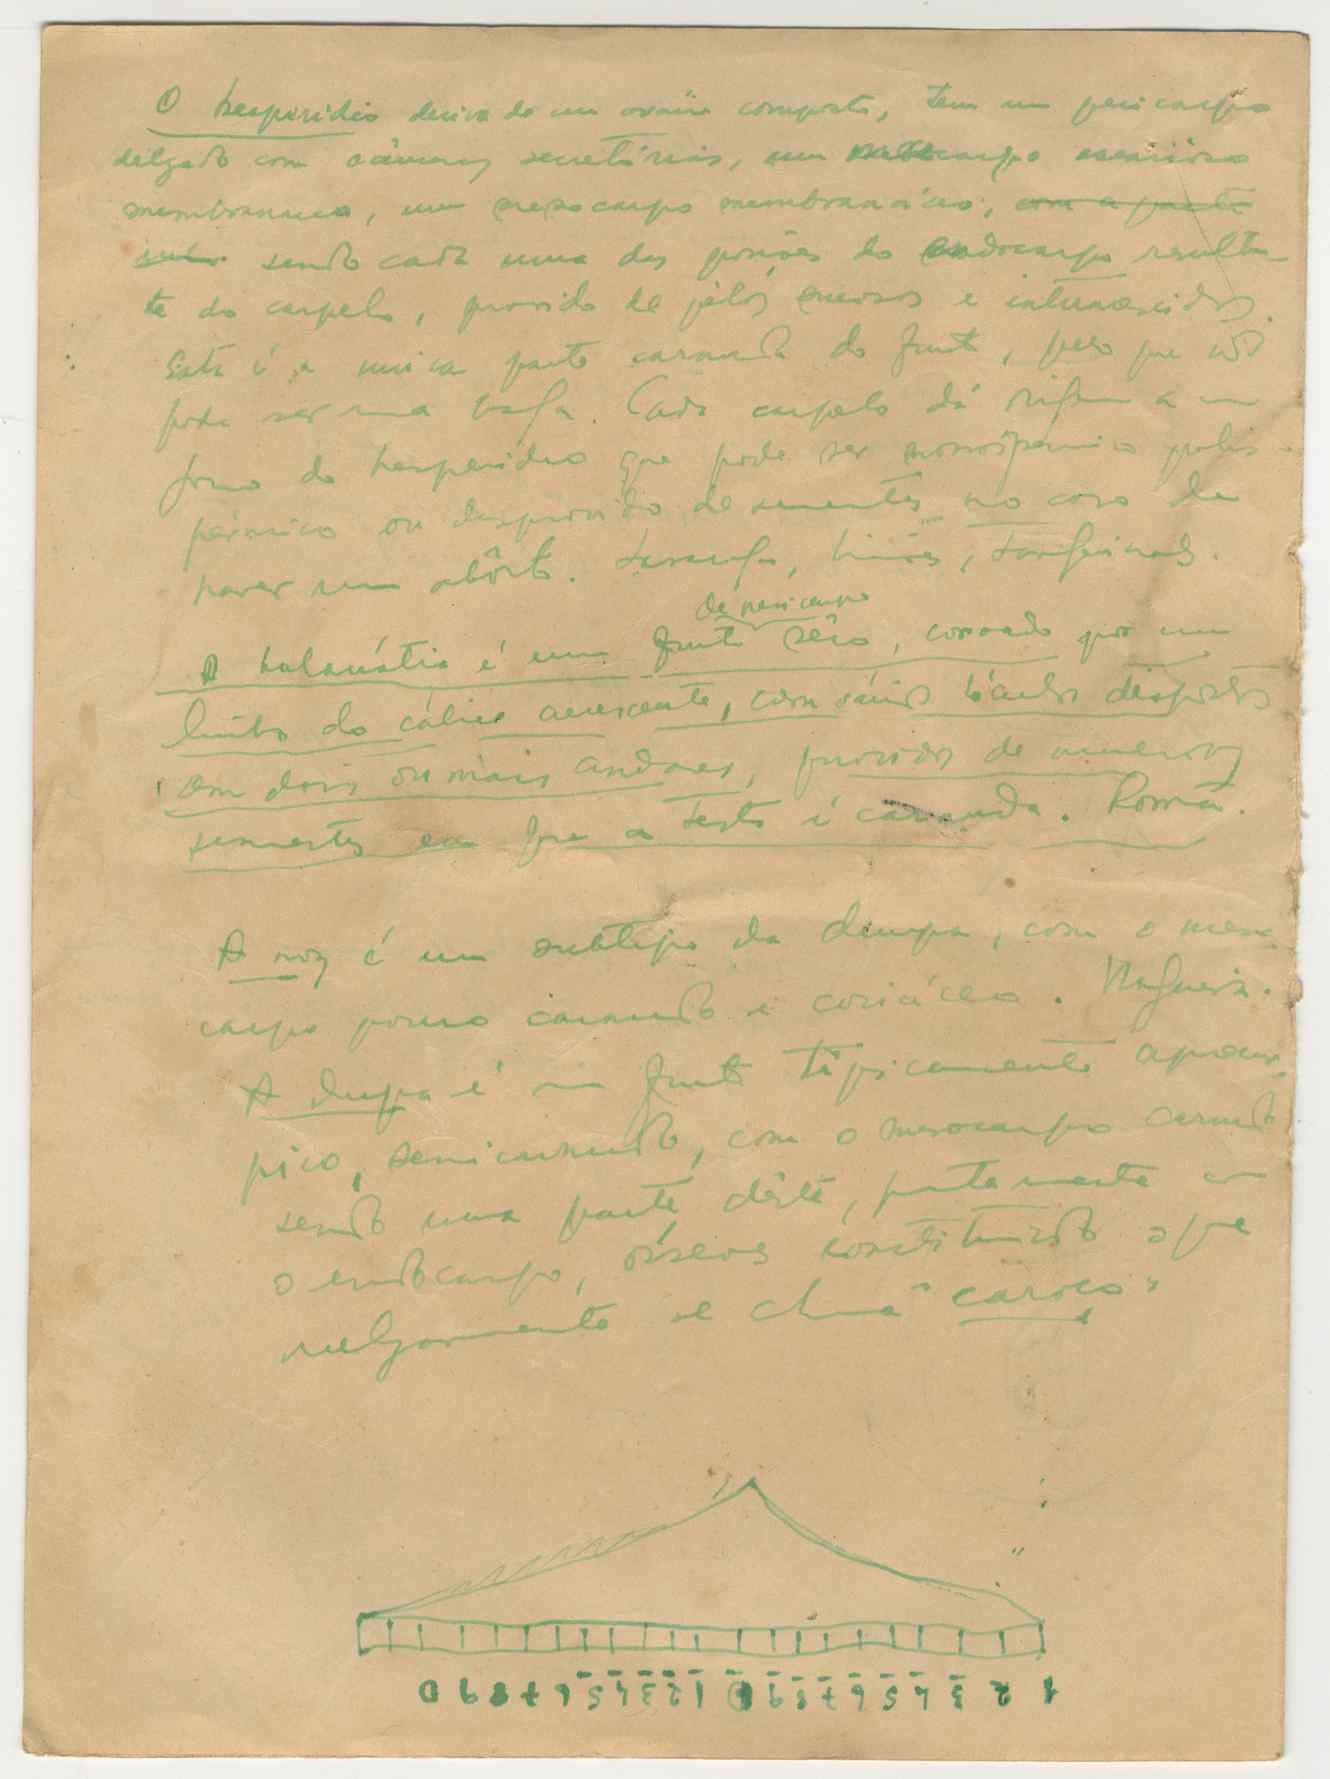 O hesperídio deriva de um ovário composto, tem um pericarpo
delgado com câmaras secretórias, um mesocarpo
membranaceo, um mesocarpo membranáceo, com a parte
sendo cada uma das porções do endocarpo resultan-
te do carpelo, provido de pêlos sucosos e intumescidos.
Esta é a unica parte carnuda do fruto, pelo que não
pode ser uma baga. Cada carpelo dá origem a um
gomo do hesperídeo que pode ser monospérmico polis-
pérmico ou desprovido de sementes no caso de
haver um abôrto. Laranja, limões, tangerinas.
de pericarpo
A balaústia é um fruto sêco, coroado por um
limbo do cálice acrescente, com vários lóculos dispostos
em dois ou mais andares, providos de numerosas
sementes em que a testa é carnuda. Romã.
A noz é um subtipo da drupa, com o meso-
carpo pouco carnudo e coriáceo. Nogueira.
A drupa é um fruto tipicamente apocár-
pico, semicarnudo, com o mesocarpo carnudo
sendo uma parte dêste, juntamente com
o endocarpo, ósseos constituindo o que
vulgarmente se chama "caroço"
0 9 8 7 6 5 4 3 2 1 0 9 8 7 6 5 4 3 2 1